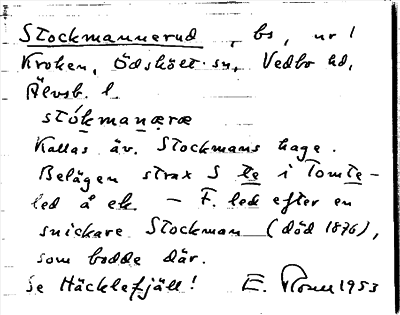 Stockmannerud, bs, nr 1
Kroken, Ödsköet sn, Vedbo hd,
Älvsb. l.
stókmanæræ
Kallas äv. Stockmans hage.
Belägen strax S te i Tomte-
led å ek. – F. led efter en
snickare Stockman (död 1876),
som bodde där.
Se Häcklefjäll! E. 1953